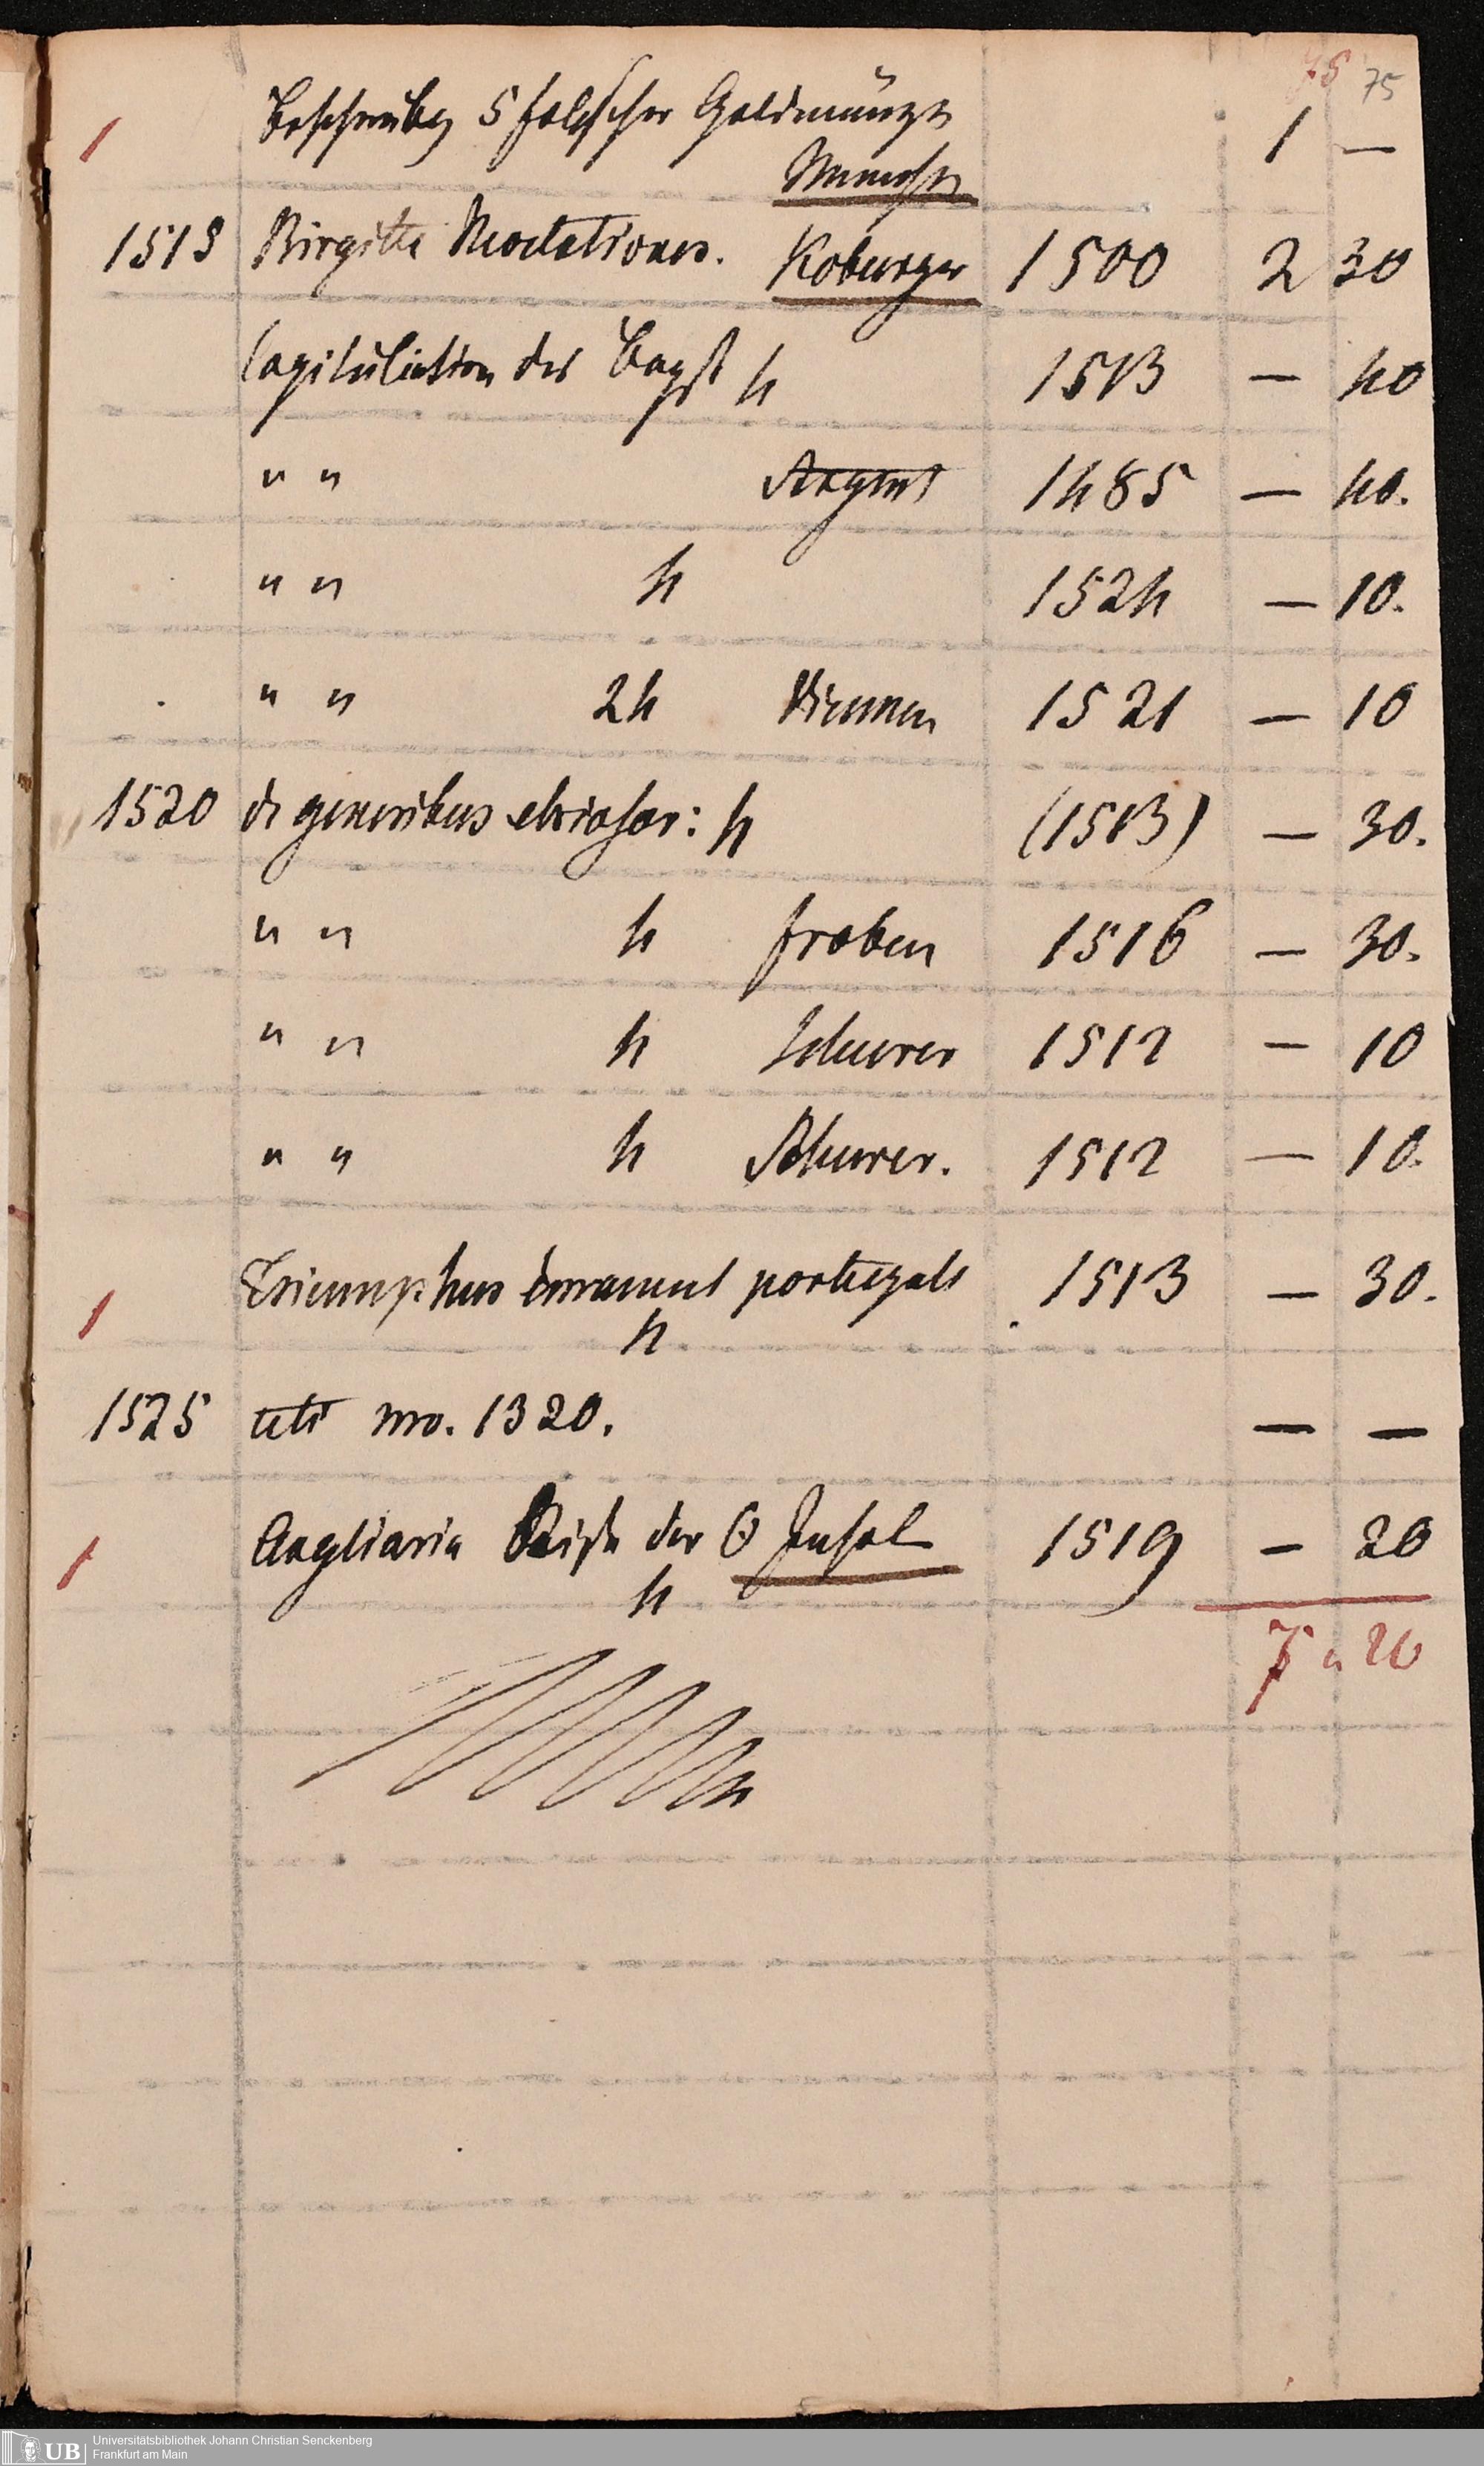 75 75
1 Beschreibg 5 falscher Goldmünzn 1 —
München
1519 Birgitte Revelationes. Koburger 1500 2 30
Capitulation des Bapst 4 1513 — 40
" " 1485 — 40.
" " 4 1524 — 10.
" " 24 1521 — 10
1520 de generibus ebriosor: 4 (1513) — 30.
" " 4 froben 1516 — 30.
" " 4 Schurer 1512 — 10
" " 4 Schurer. 1512 — 10.
1 Triumphus portugals 1513 — 30.
4
1525 uti nro. 1320. — —
1 Angliaria der 6 Insel 1519 — 20
4
7 " 20
Universitätsbibliothek Johann Christian Senckenberg
Frankfurt am Main
UB